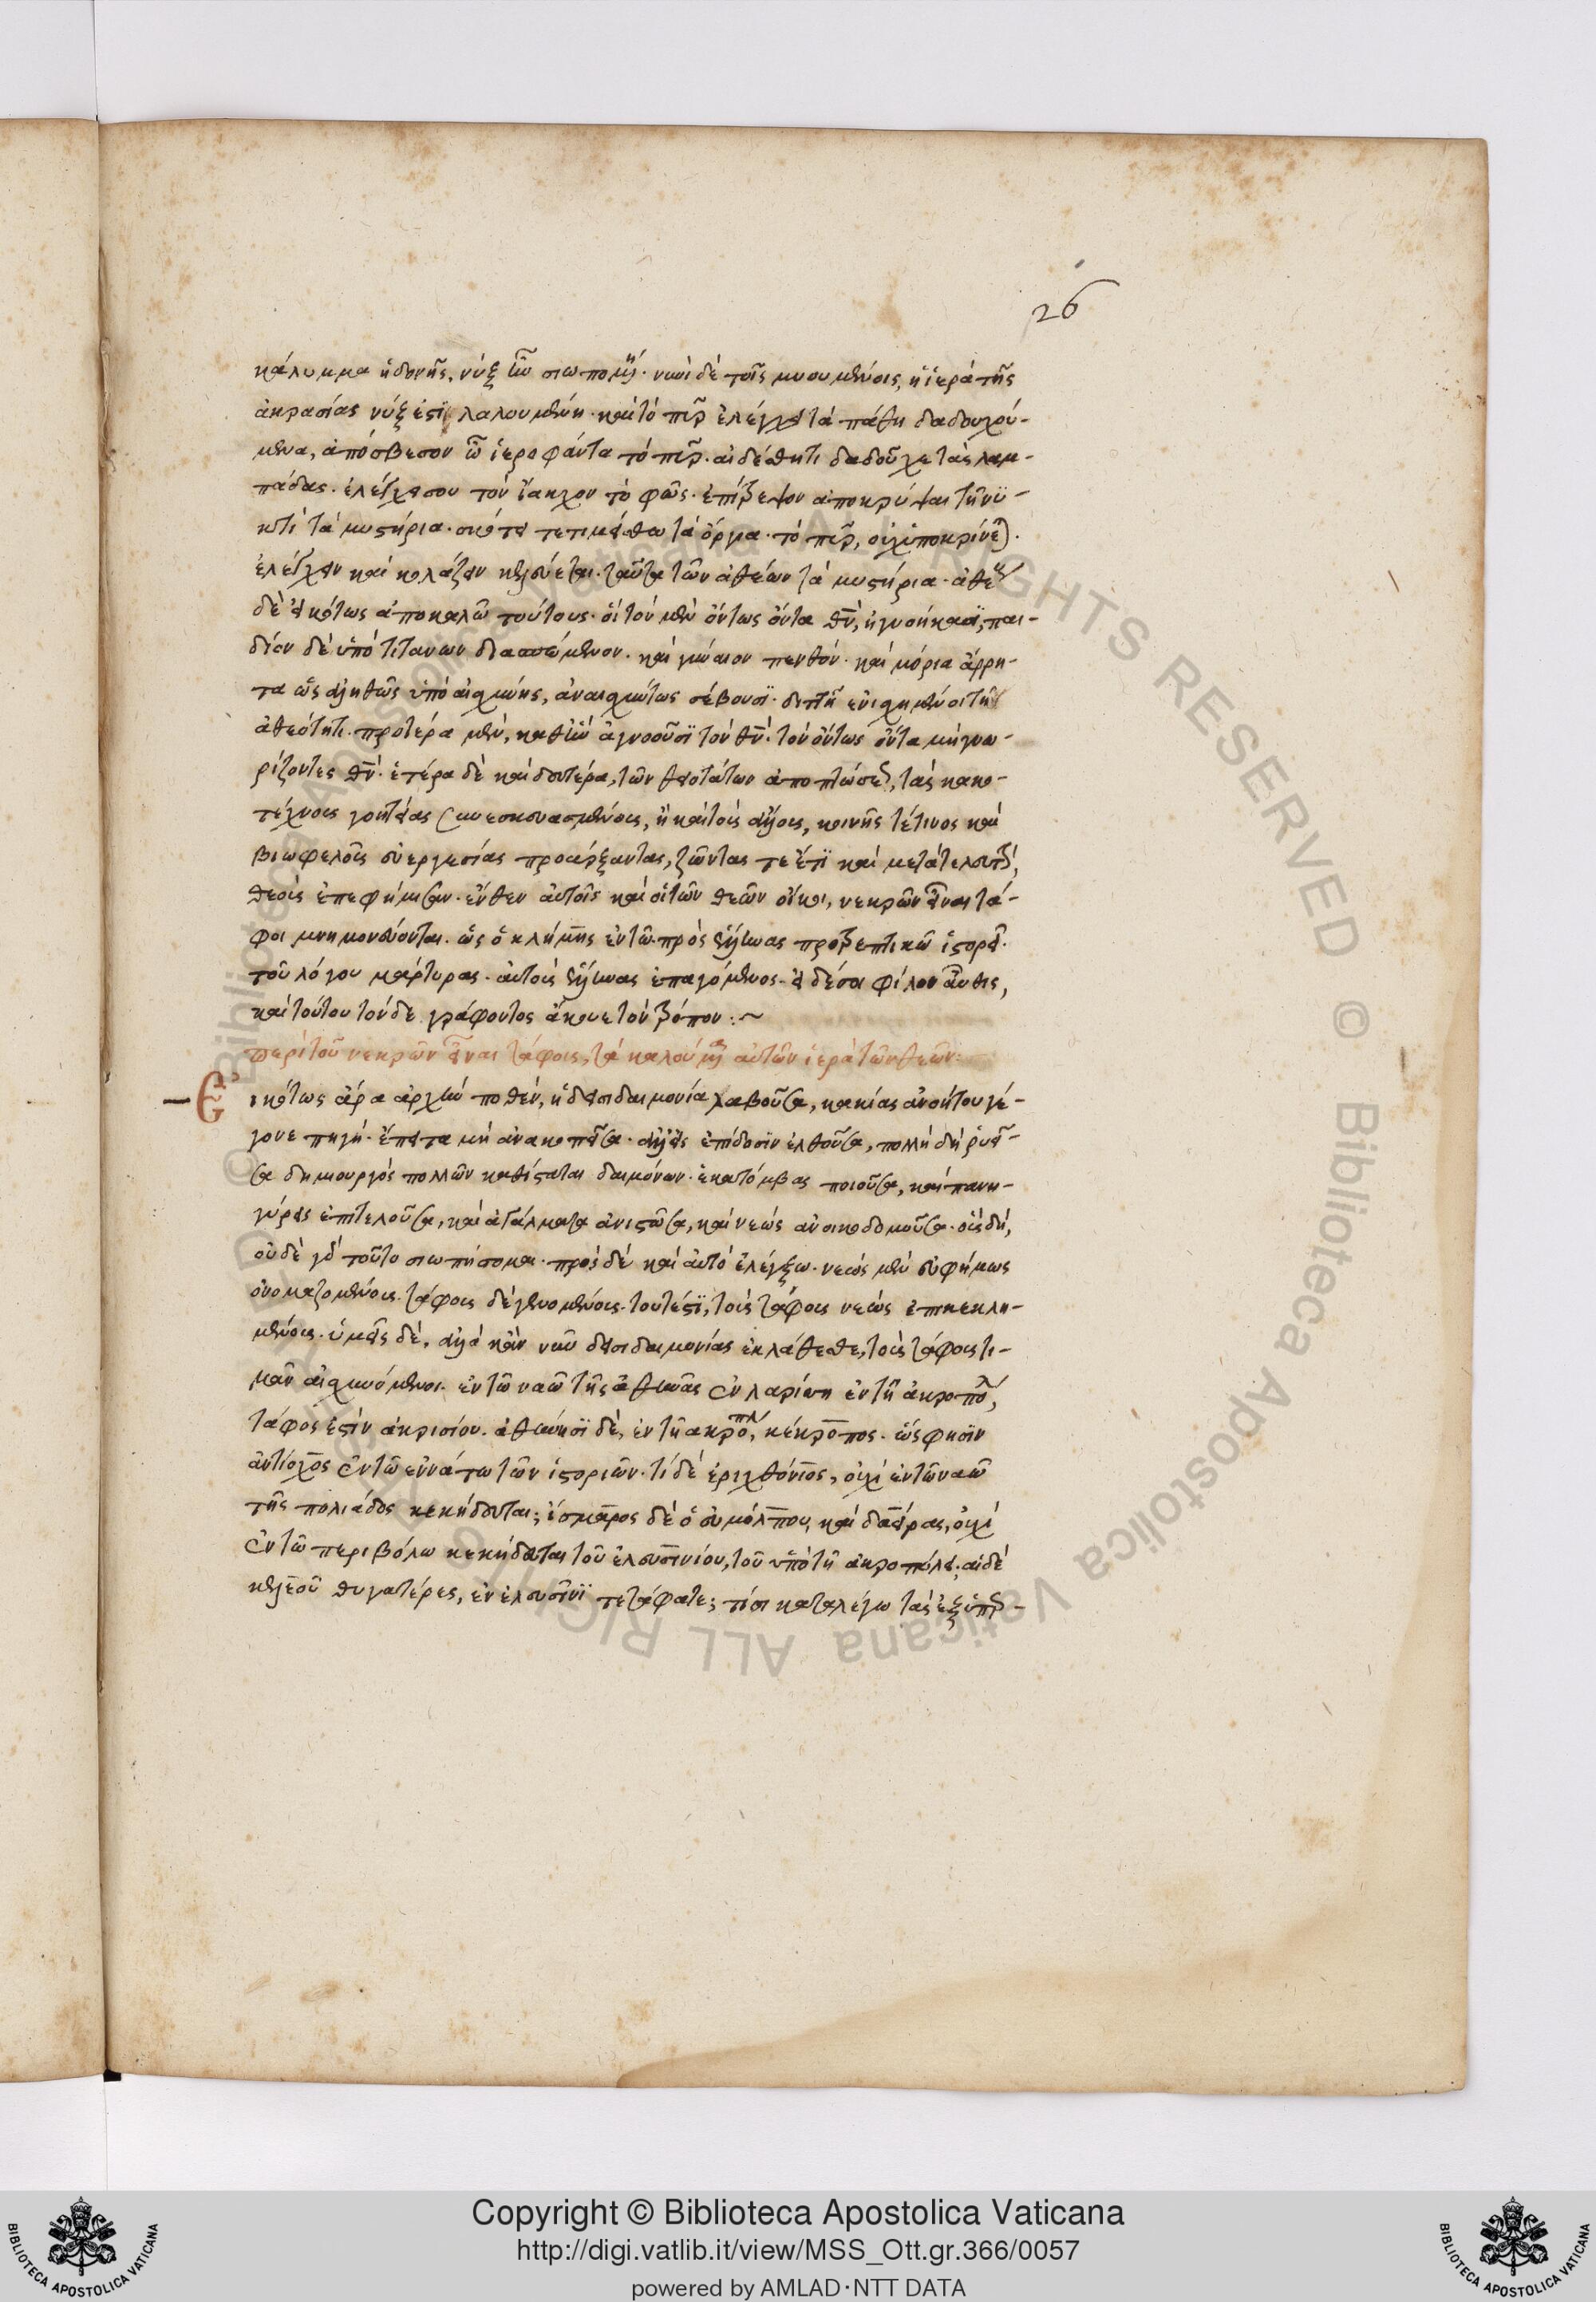 26
κάλυμμα ἡδονῆς, νὺξ ἦν σιωπομένη· νυνὶ δὲ τοῖς μυουμένοις, ἡ ἱερὰ τῆς
ἀκρασίας νὺξ ἐστὶ λαλουμένη· καὶ τὸ πῦρ ἐλέγχει τὰ πάθη δαδουχού-
μενα, ἀπόσβεσον ὦ ἱεροφάντα τὸ πῦρ· αἰδέσθητι δαδοῦχε τὰς λαμ-
πάδας· ἐλέγχει σου τὸν ἴακχον τὸ φῶς· ἐπίτρεψον ἀποκρύψαι τῇ νυ-
κτὶ τὰ μυστήρια· σκότει τετιμήσθω τὰ ὄργια· τὸ πῦρ, οὐχ ὑποκρίνεται·
ἐλέγχειν καὶ κολάζειν κελεύεται· ταῦτα τῶν ἀθέων τὰ μυστήρια· ἀθέους
δὲ εἰκότως ἀποκαλῶ τούτους· οἳ τὸν μὲν ὄντως ὄντα θν̅, ἠγνοήκασι, παι-
δίον δὲ ὑπὸ τιτάνων διασπώμενον· καὶ γύναιον πενθοῦν· καὶ μόρια ἄρρη-
τα ὡς ἀληθῶς ὑπὸ αἰσχύνης, ἀναισχύντως σέβουσι· διττῇ ἐνισχημένοι τῇ
ἀθεότητι· προτέρα μὲν, καθ' ἣν ἀγνοοῦσι τὸν θν̅· τὸν ὄντως ὄντα μὴ γνω-
ρίζοντες θν̅· ἑτέρα δὲ καὶ δευτέρα, τῶν θειοτάτων ἀποπτώσει, τὰς κακο-
τέχνοις γοητείας συνεσκευασμένοις, ἢ καὶ τοὺς ἄλλους, κοινῆς τέτινος καὶ
βιωφελοῦς συνεργεσίας προάρξαντας, ζῶντας τε ἔτι καὶ μετὰ τελευτὴν,
θεοὺς ἐπεφήμισαν· ἔνθεν αὐτοῖς καὶ οἱ τῶν θεῶν οἶκοι, νεκρῶν εἶναι τά-
φοι μνημονεύονται· ὡς ὁ κλήμης ἐν τῷ πρὸς ἕλληνας προτρεπτικῷ ἱστορεῖ·
τοῦ λόγου μάρτυρας· αὐτοὺς ἕλληνας ἐπαγόμενος· εἰ δέ σοι φίλον αὖθις,
καὶ τούτου τόνδε γράφοντος ἄκουε τὸν τρόπον :~
περὶ τοῦ νεκρῶν εἶναι τάφους, τὰ καλούμενα αὐτῶν ἱερὰ τῶν θεῶν:
Εἰκότως ἄρα ἀρχήν ποθεν, ἡ δεισιδαιμονία λαβοῦσα, κακίας ἀνοήτου γέ-
γονε πηγή· ἔπειτα μὴ ἀνακοπεῖσα· ἀλλ' εἰς ἐπίδοσιν ἐλθοῦσα, πολλὴ δὴ ῥυεῖ-
σα δημιουργὸς πολλῶν καθίσταται δαιμόνων· ἑκατόμβας ποιοῦσα, καὶ πανη-
γύρεις ἐπιτελοῦσα, καὶ ἀγάλματα ἀνιστῶσα, καὶ νεὼς ἀνοικοδομοῦσα· οὓς δὴ,
οὐδὲ γὰρ τοῦτο σιωπήσομαι· πρὸς δὲ καὶ αὐτὸ ἐλέγξω· νεὼς μὲν εὐφήμως
ὀνομαζομένους· τάφους δὲ γενομένους· τουτέστι, τοὺς τάφους νεὼς ἐπικεκλη-
μένους· ὑμεῖς δὲ, ἀλλὰ κἂν νῦν δεισιδαιμονίας ἐκλάθεσθε, τοὺς τάφους τι-
μᾶν αἰσχυνόμενοι· ἐν τῷ ναῷ τῆς ἀθηνᾶς ἐν λαρίσῃ ἐν τῇ ἀκροπόλει,
τάφος ἐστὶν ἀκρισίου· ἀθήνησι δὲ, ἐν τῇ ἀκροπόλει, κέκροπος· ὥς φησιν
ἀντίοχος ἐν τῷ ἐννάτῳ τῶν ἱστοριῶν· τί δὲ ἐριχθόνιος, οὐχὶ ἐν τῷ ναῷ
τῆς πολιάδος κεκήδευται; ἴσμαρος δὲ ὁ εὐμόλπου, καὶ δαείρας, οὐχὶ
ἐν τῷ περιβόλῳ κεκήδευται τοῦ ἐλευσινίου, τοῦ ὑπὸ τῇ ἀκροπόλει; αἱ δὲ
κελεοῦ θυγατέρες, ἐν ἐλευσῖνι τετάφαται; τί σοι καταλέγω τὰς ἐξ ὑπερ-
Copyright © Biblioteca Apostolica Vaticana
http://digi.vatlib.it/view/MSS_Ott.gr.366/0057
powered by AMLAD·NTT DATA
BIBLIOTECA APOSTOLICA VATICANA
BIBLIOTECA APOSTOLICA VATICANA